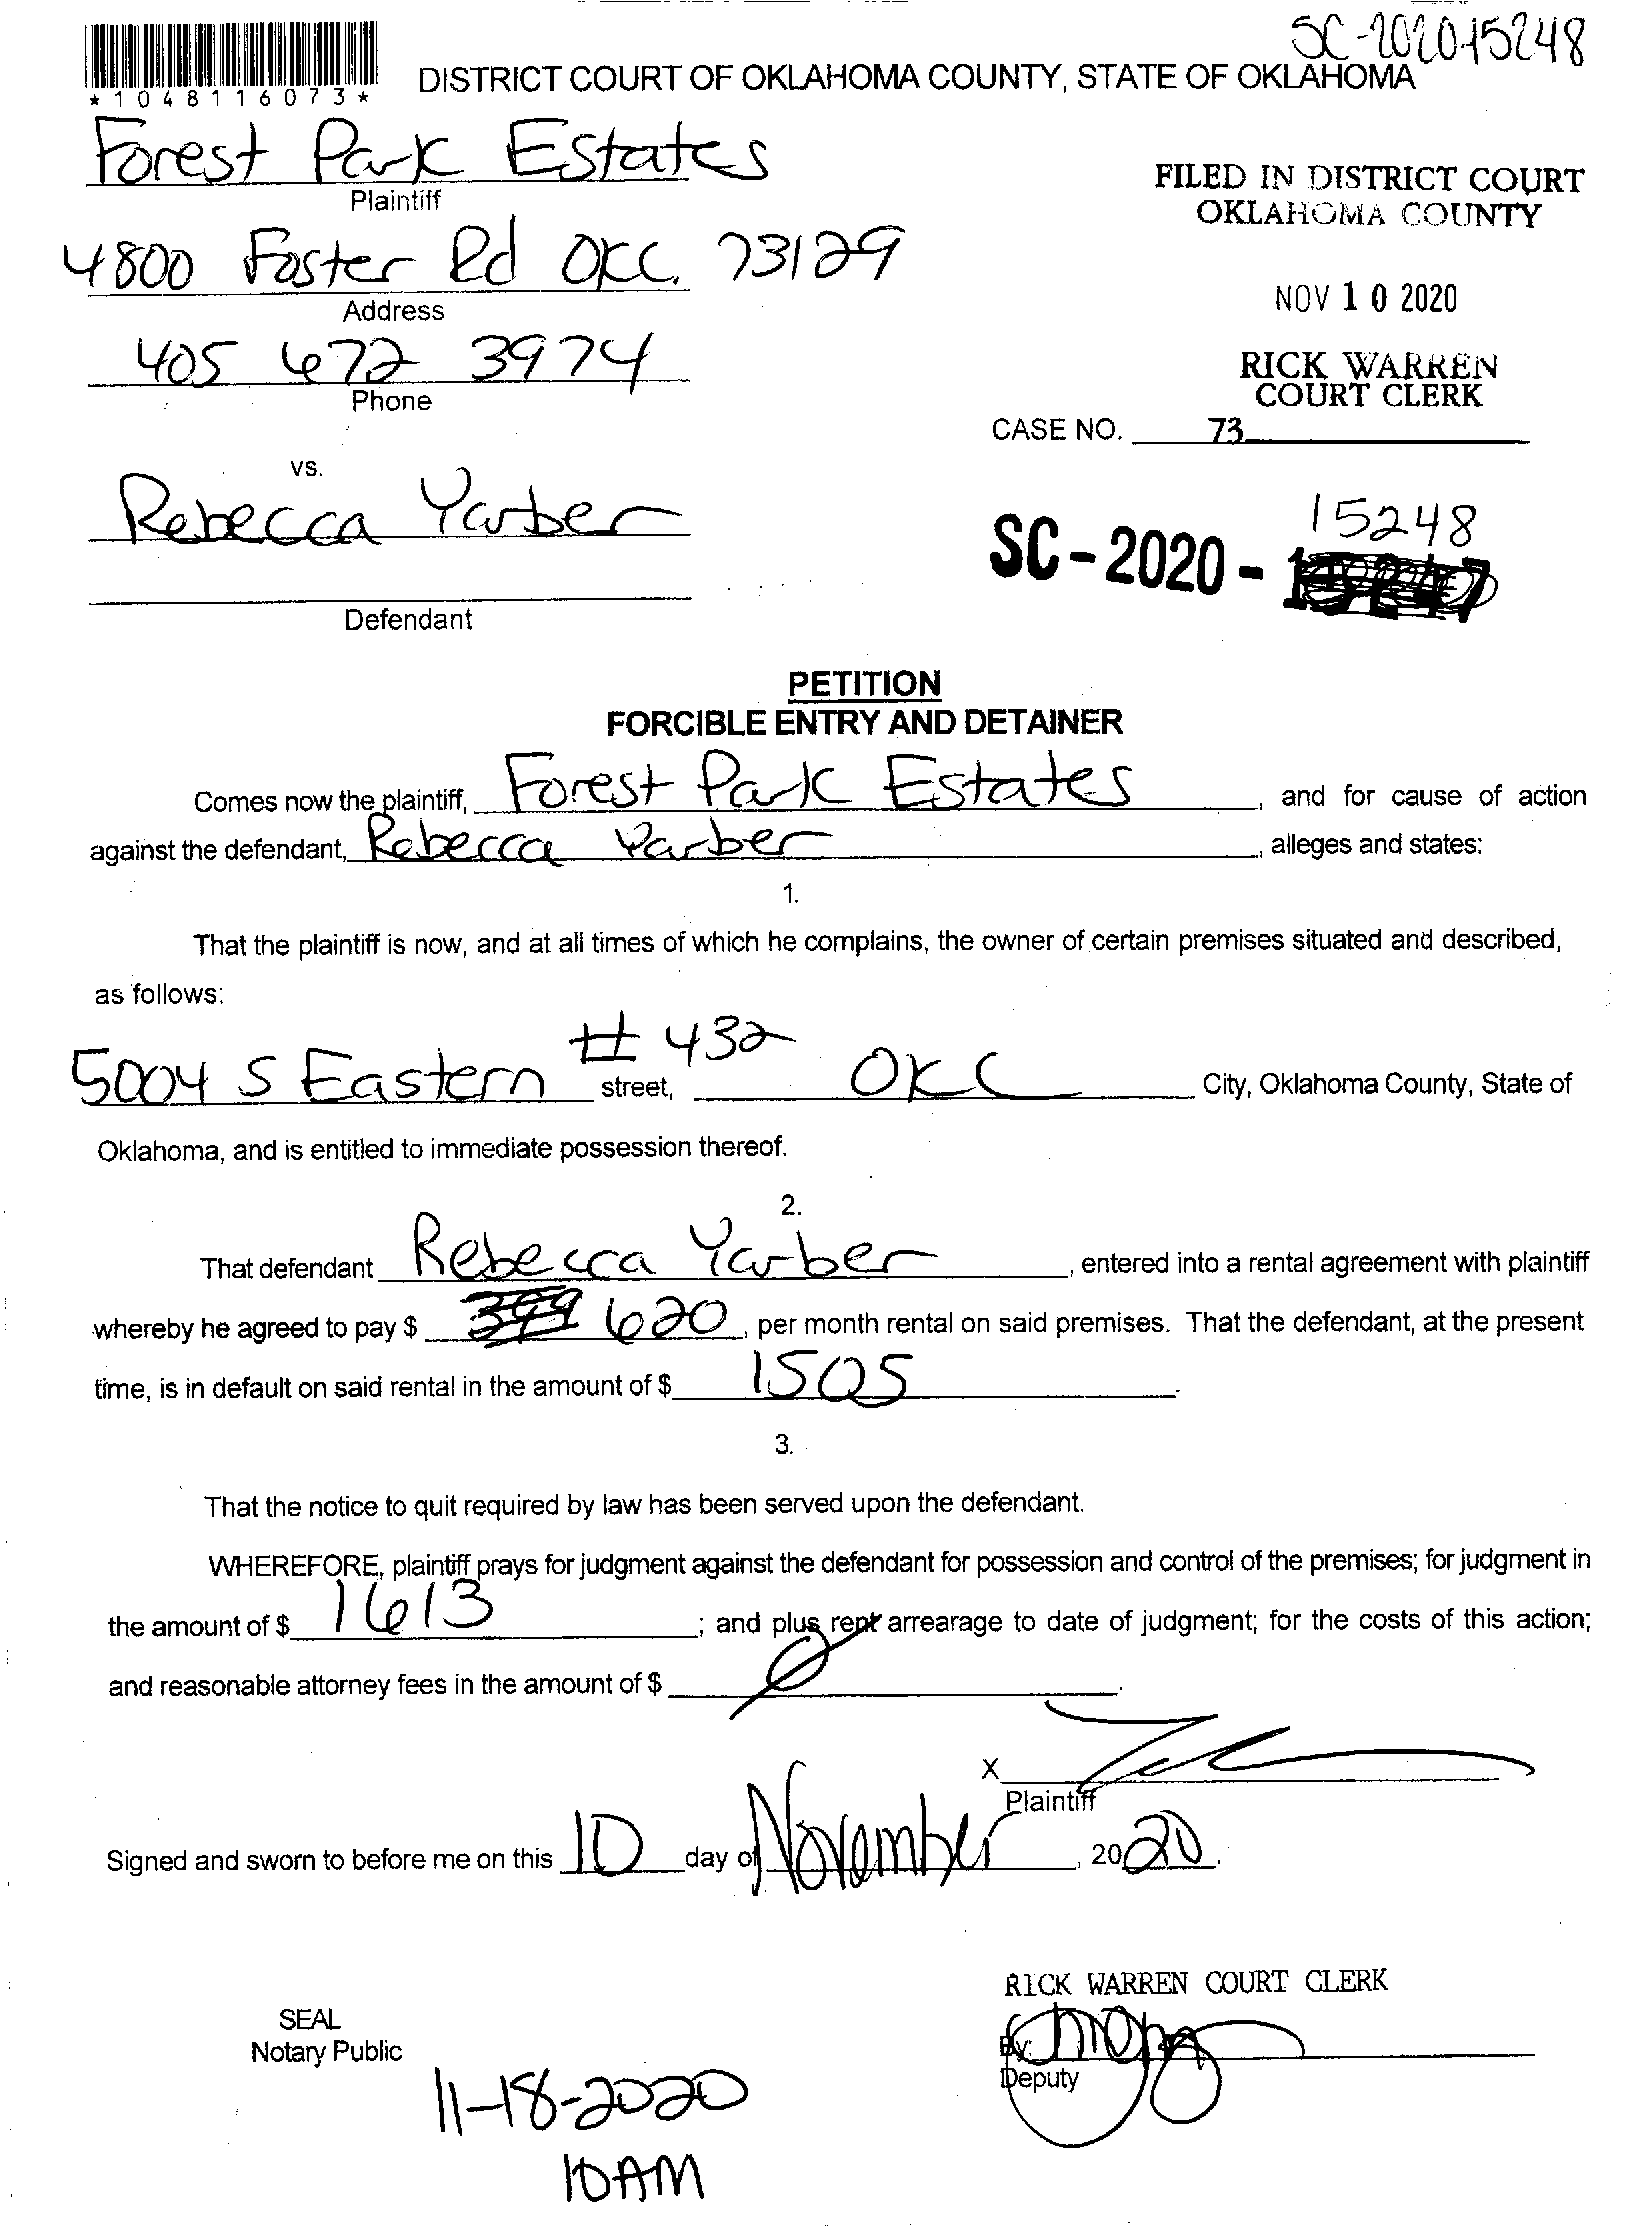 SC-2020-15248
*1048116073*
DISTRICT COURT OF OKLAHOMA COUNTY, STATE OF OKLAHOMA
Forest Park Estates
Plaintiff
FILED IN DISTRICT COURT
OKLAHOMA COUNTY
4800 Foster Rd OKC. 73129
Address
NOV 10 2020
405 672 3974
Phone
RICK WARREN
COURT CLERK
CASE NO. 73
vs.
Rebecca Yarber
15248
SC-2020-
Defendant
PETITION
FORCIBLE ENTRY AND DETAINER
Comes now the plaintiff, Forest Park Estates, and for cause of action
against the defendant, Rebecca Yarber, alleges and states:
1.
That the plaintiff is now, and at all times of which he complains, the owner of certain premises situated and described,
as follows:
5004 S Eastern # 432 street, OKC City, Oklahoma County, State of
Oklahoma, and is entitled to immediate possession thereof.
2.
That defendant Rebecca Yarber, entered into a rental agreement with plaintiff
whereby he agreed to pay $ 399 620, per month rental on said premises. That the defendant, at the present
time, is in default on said rental in the amount of $ 1505.
3.
That the notice to quit required by law has been served upon the defendant.
WHEREFORE, plaintiff prays for judgment against the defendant for possession and control of the premises; for judgment in
the amount of $ 1613; and plus rent arrearage to date of judgment; for the costs of this action;
and reasonable attorney fees in the amount of $ 0.
X
Plaintiff
Signed and sworn to before me on this 10 day of November, 2020.
RICK WARREN COURT CLERK
SEAL
Notary Public
By:
Deputy
11-18-2020
10AM